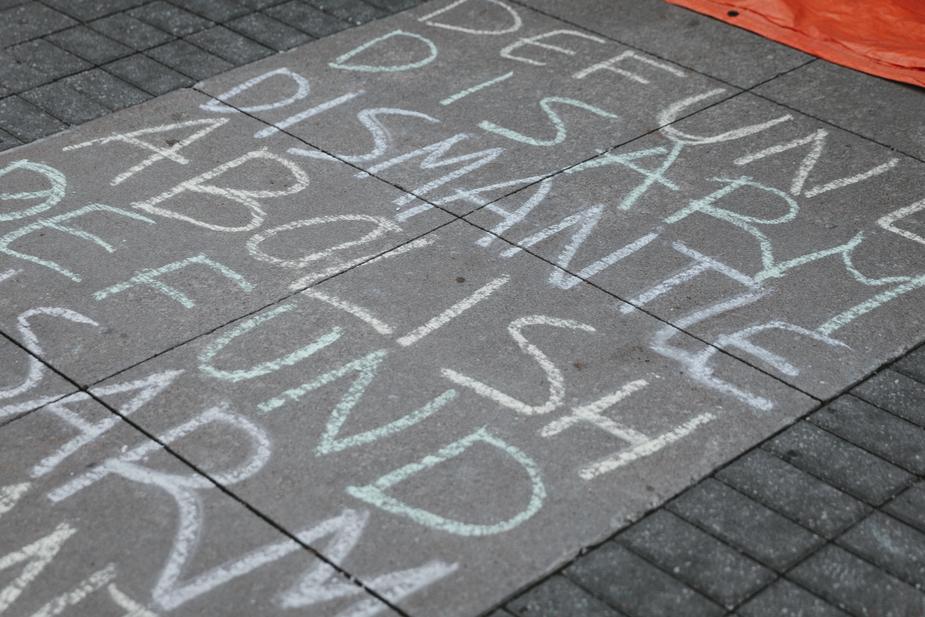 DEFUND
DISARM
DISMANTLE
ABOLISH
DEFUND
SARM